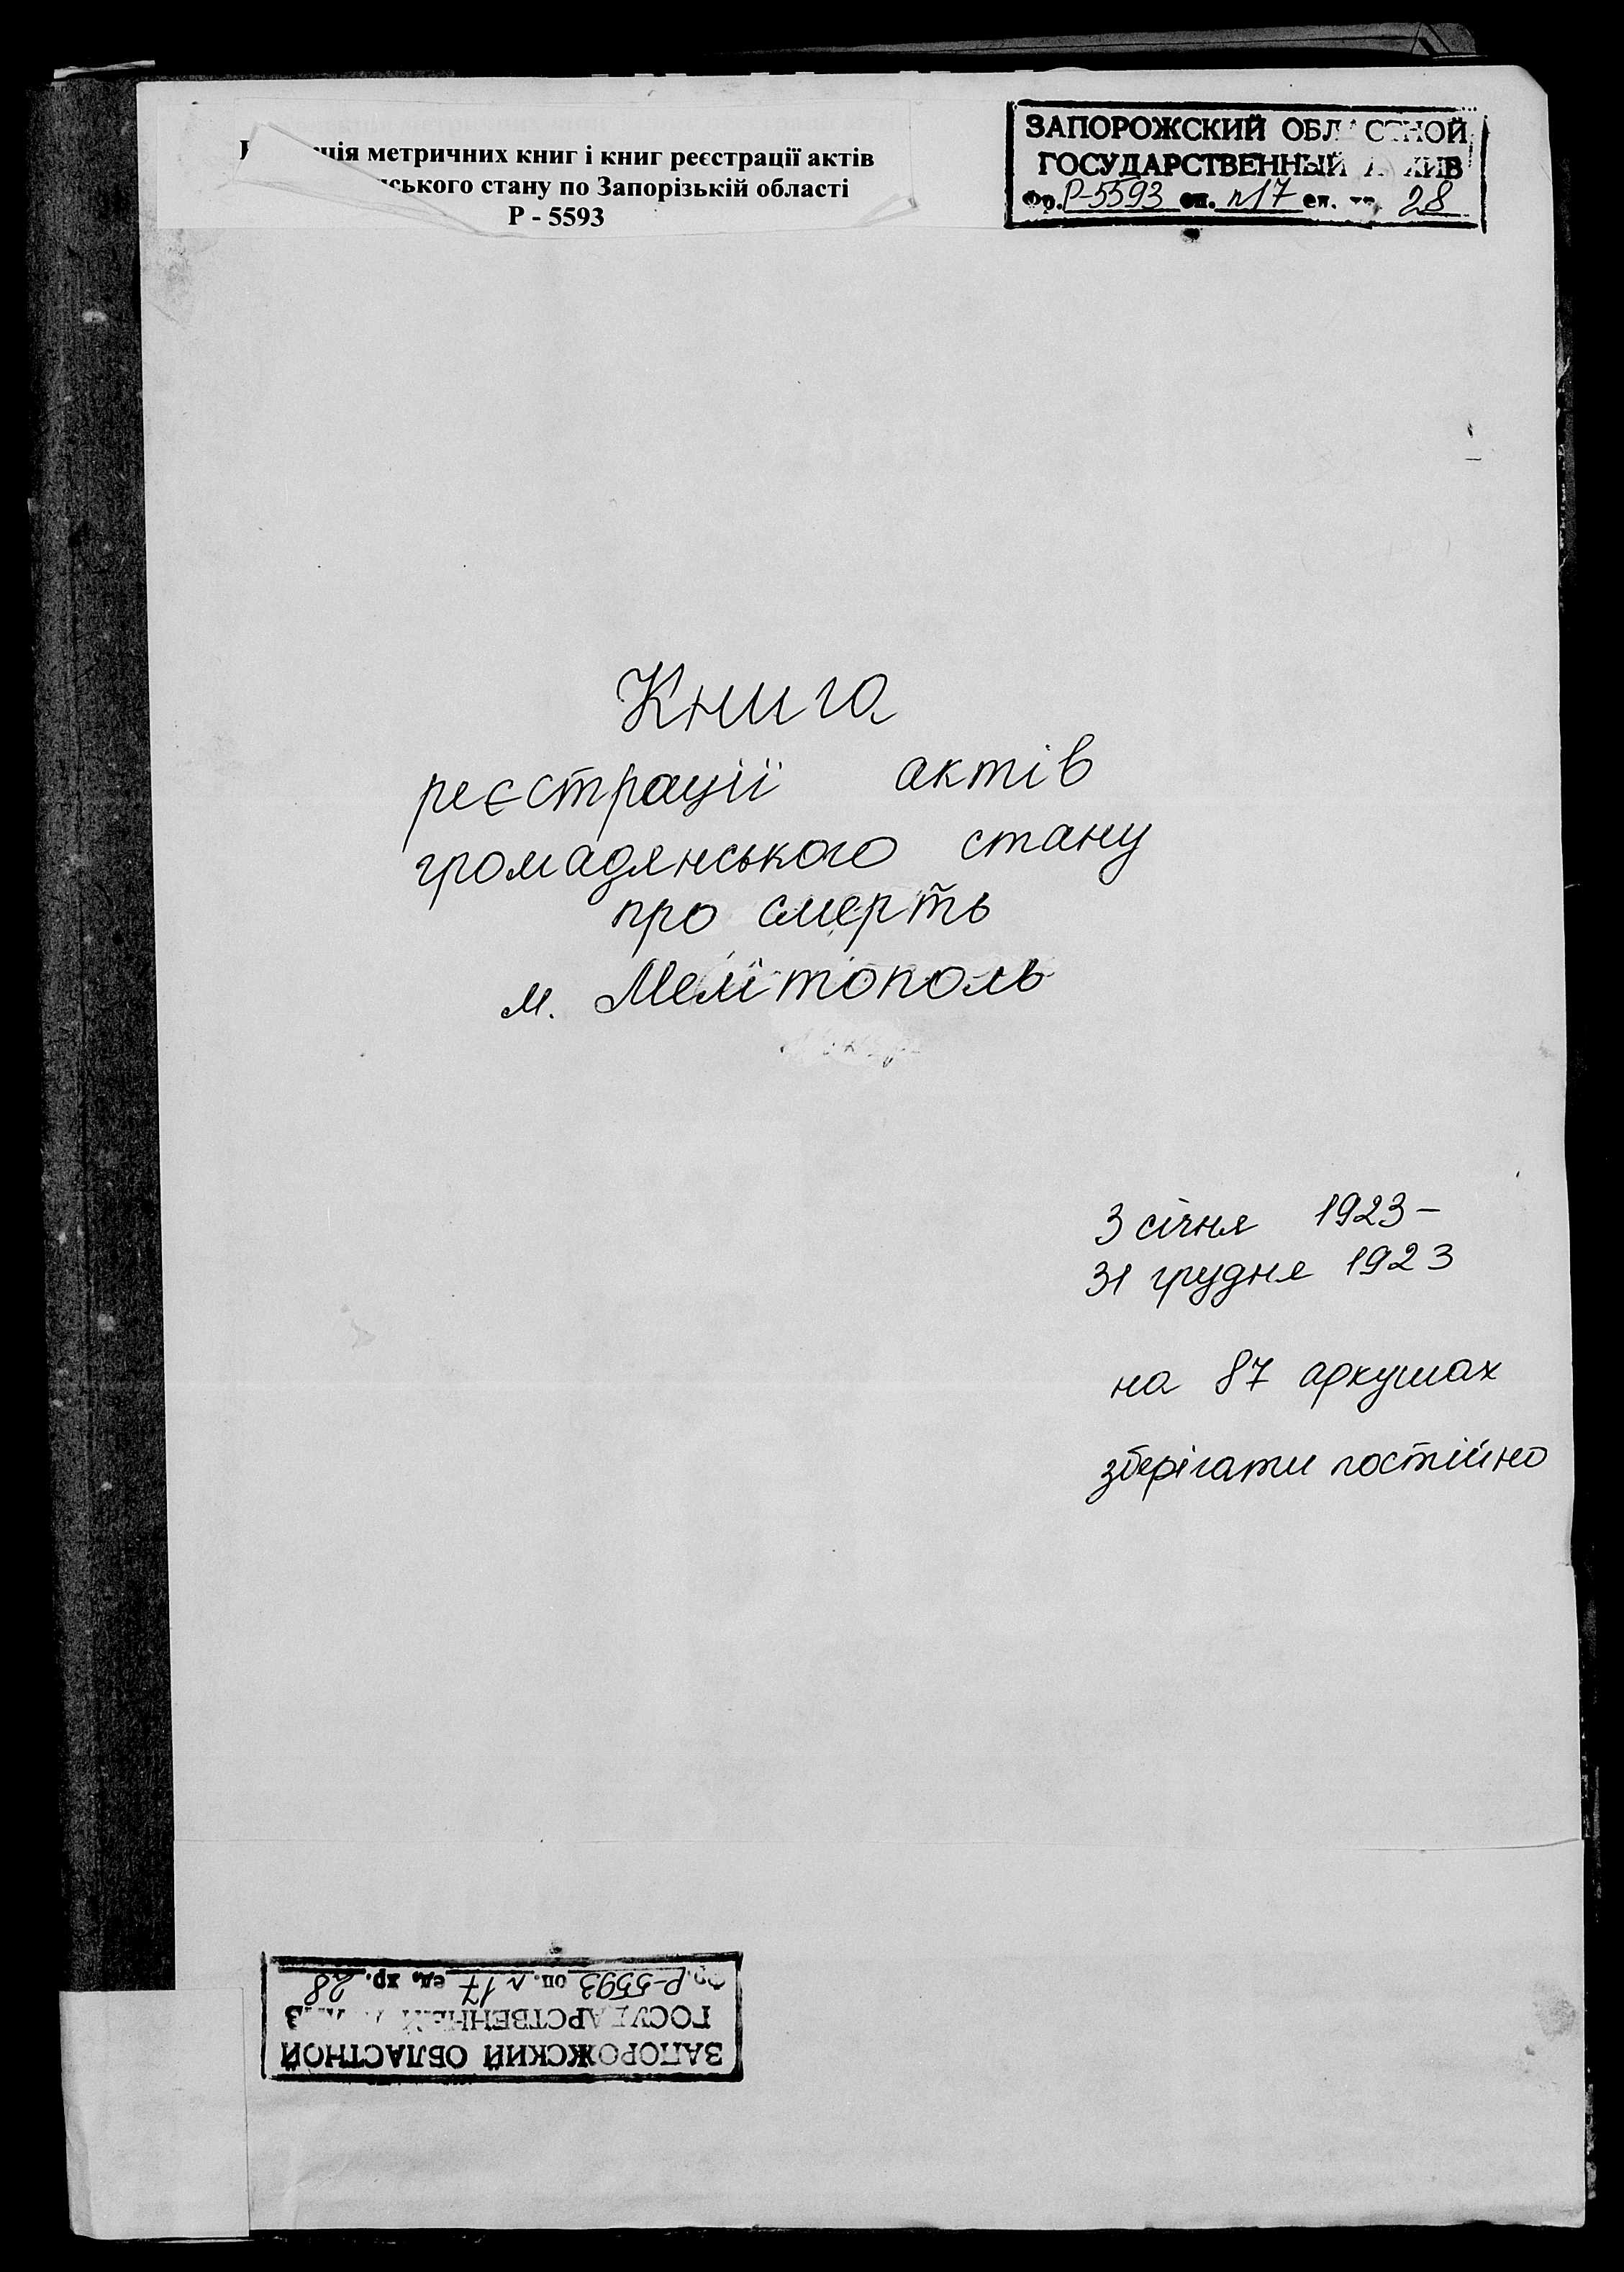 метричних книг і книг реєстрації актів
стану по Запорізькій області
Р - 5593
ЗАПОРОЖСКИЙ ОБЛАСТНОЙ
ГОСУДАРСТВЕННЫЙ АРХИВ
Фр. Р-5593 оп. п17 ед. хр. 28
Книга
реєстрації актів
громадянського стану
про смерть
м. Мелітополь
3 січня 1923 –
31 грудня 1923
на 87 аркушах
зберігати постійно
ЗАПОРОЖСКИЙ ОБЛАСТНОЙ
ГОСУДАРСТВЕННЫЙ АРХИВ
Фр. Р-5593 оп. п17 ед. хр. 28